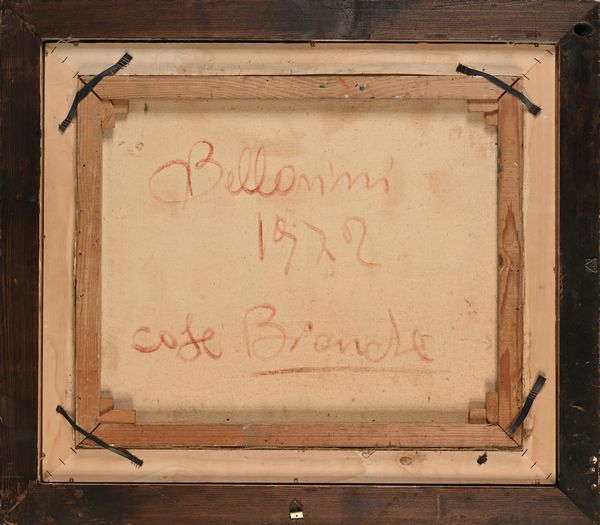 Bellonini
1972
case Bianche